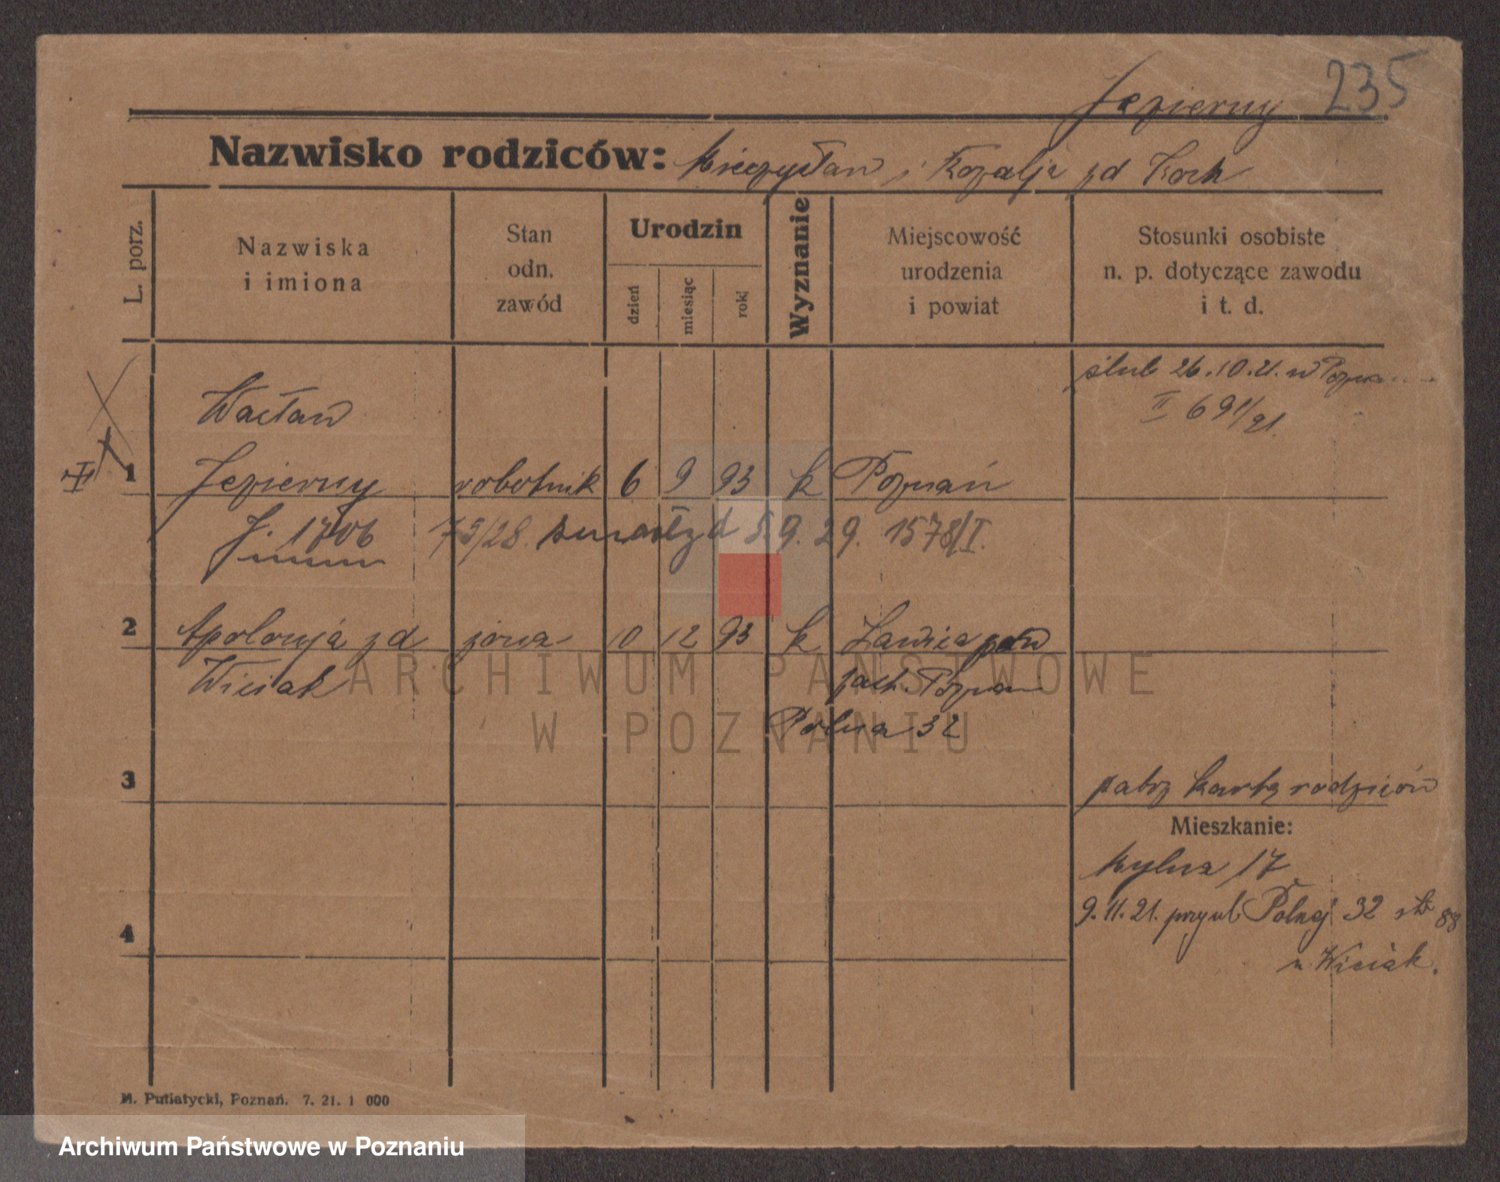 Jezierny 235
Nazwisko rodziców: Mieczysław i Rozalja zd Koch
L. porz.
Nazwiska
i imiona
Stan
odn.
zawód
Urodzin
dzień
miesiąc
rok
Wyznanie
Miejscowość
urodzenia
i powiat
Stosunki osobiste
n. p. dotyczące zawodu
i t. d.
ślub 26.10.21. w Pozna
II 691/21.
Wacław
1 Jezierny robotnik 6 9 93 k Poznań
J. 1706 75/28. zmarł d 5.9.29. 1578/I.
2 Apolonja zd żona 10 12 93 k Ławica pow
Wiciak zach. Pozna
Polna 32
3 patrz kartę rodziców
Mieszkanie:
Młyna 17
9.11.21. przy ul. Polnej 32 88
4 u Wiciak.
M. Putiatycki, Poznań. 7. 21. 1 000
ARCHIWUM PAŃSTWOWE
W POZNANIU
Archiwum Państwowe w Poznaniu